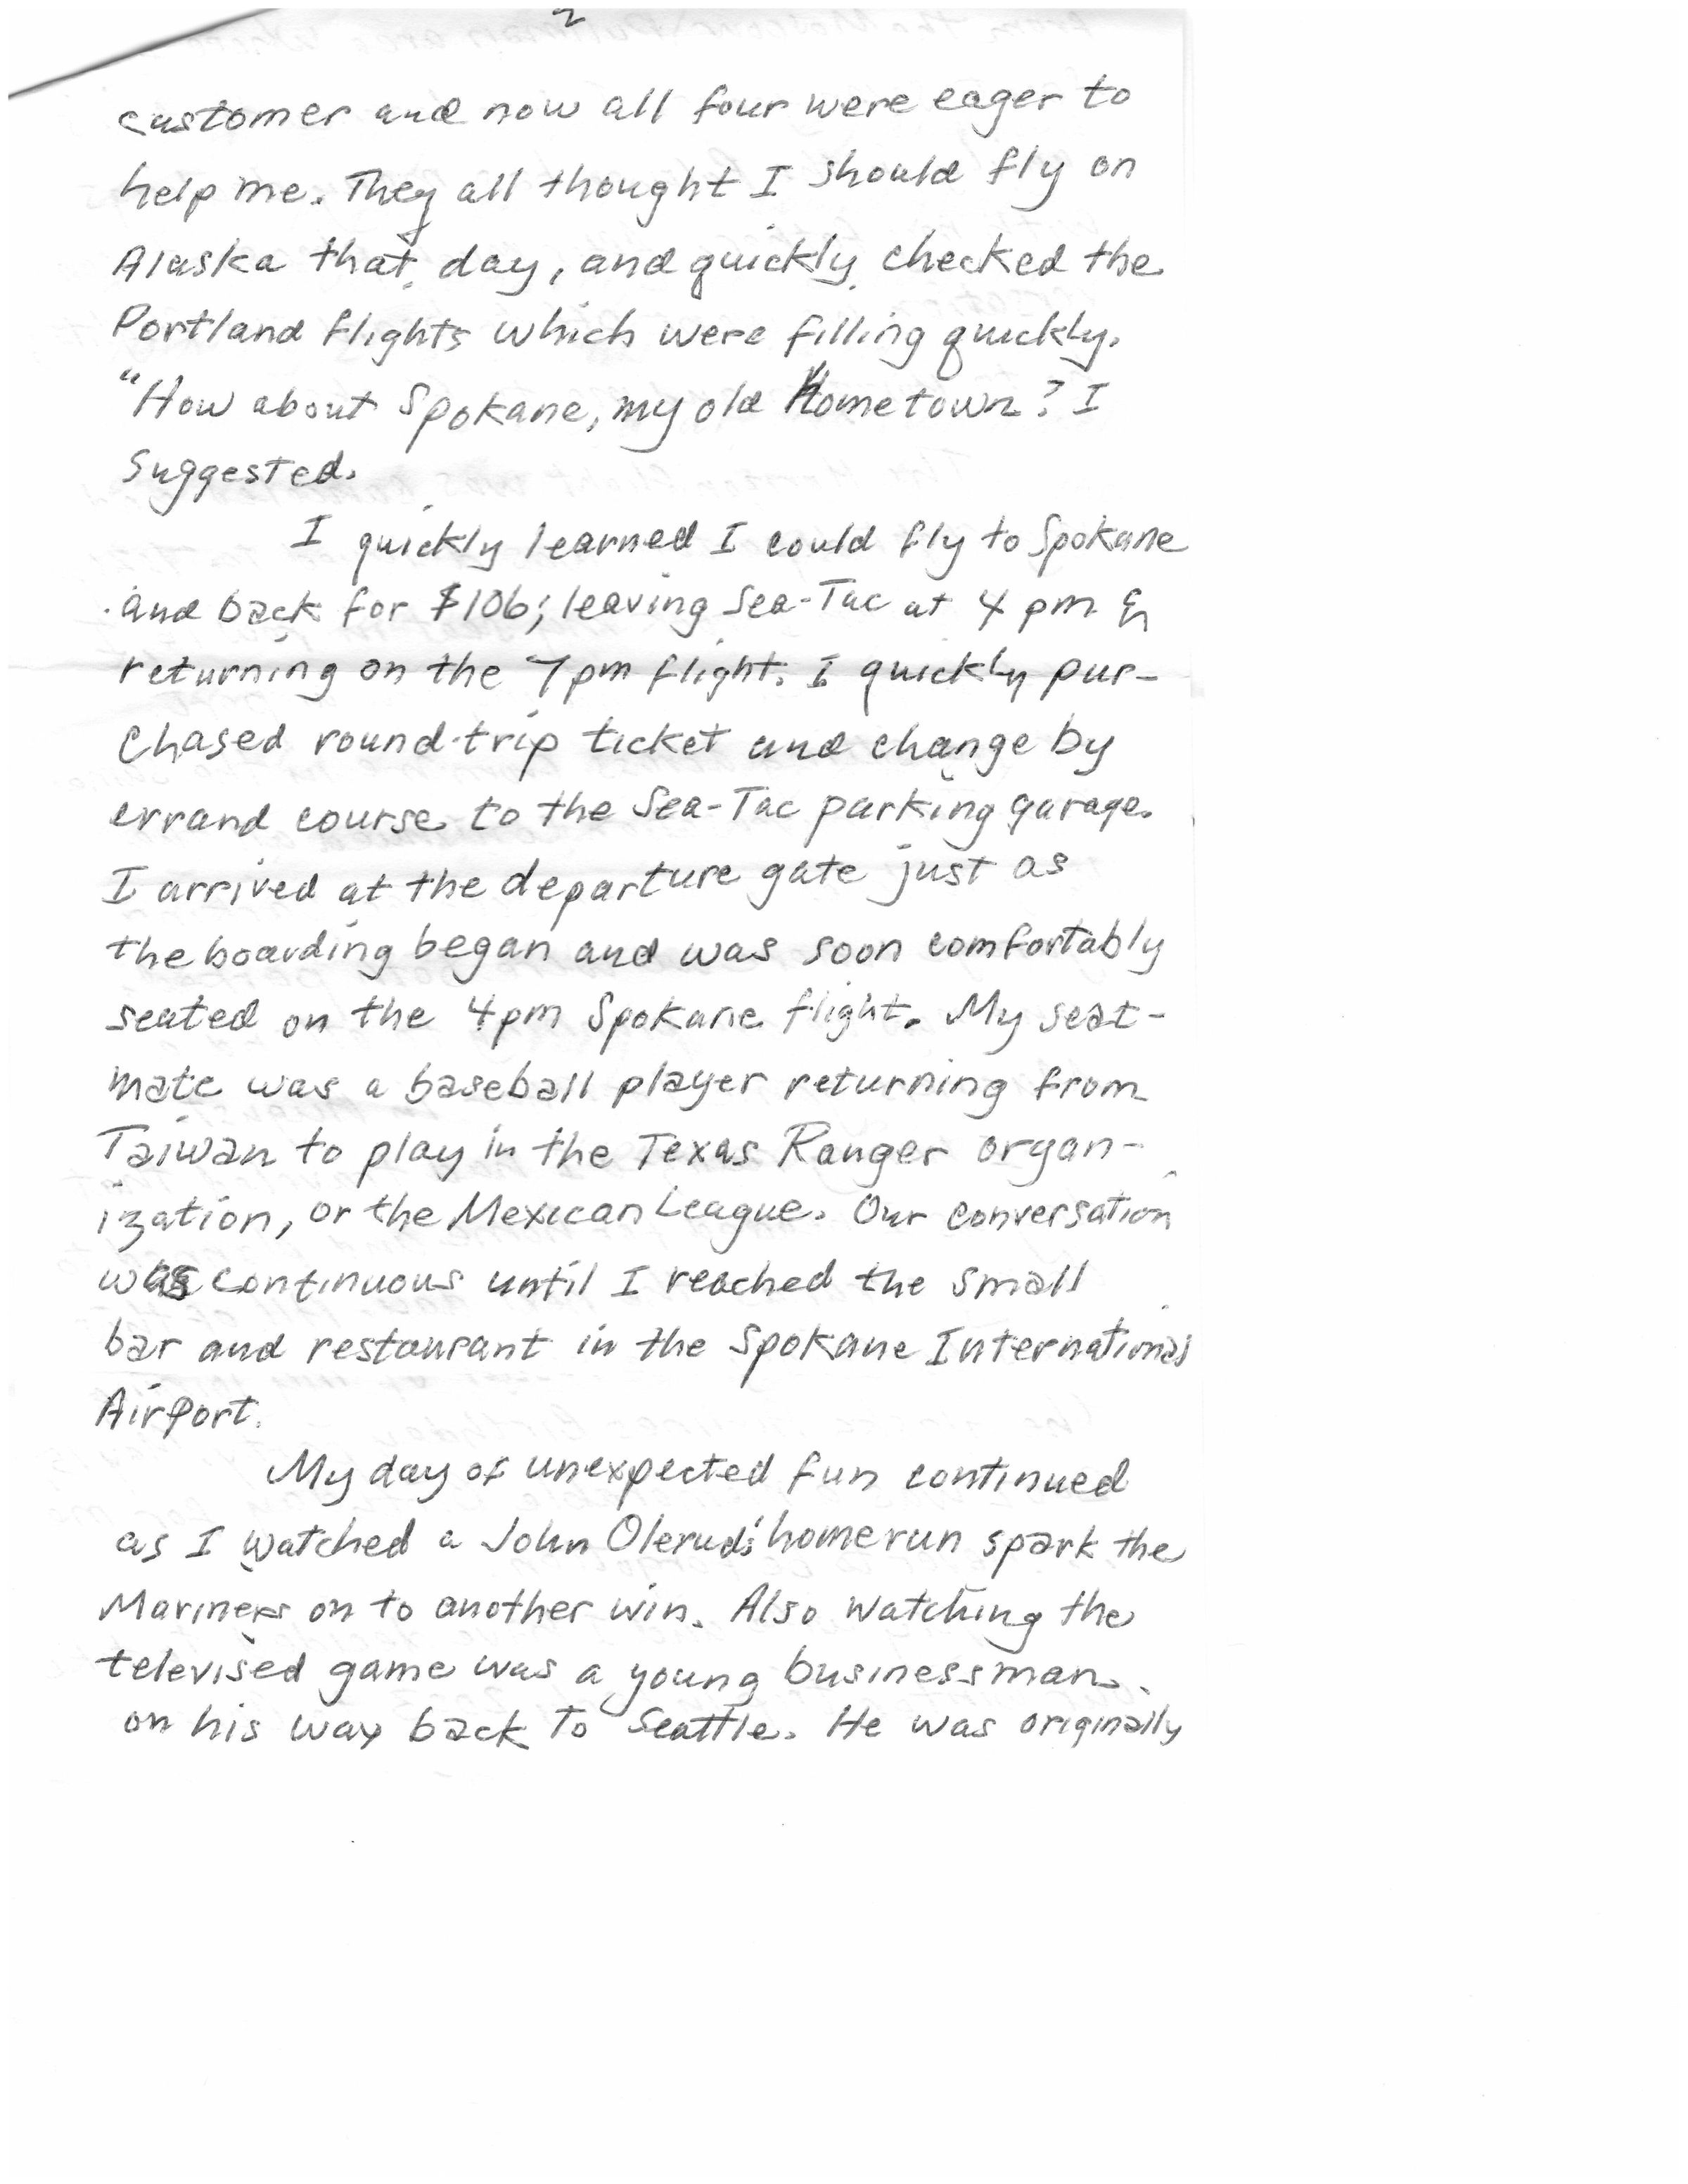 2
customer and now all four were eager to
help me. They all thought I should fly on
Alaska that day, and quickly checked the
Portland flights which were filling quickly.
"How about Spokane, my old hometown? I
suggested.
I quickly learned I could fly to Spokane
and back for $106; leaving Sea-Tac at 4 pm &
returning on the 7pm flight. I quickly pur-
chased round-trip ticket and change by
errand course to the Sea-Tac parking garage.
I arrived at the departure gate just as
the boarding began and was soon comfortably
seated on the 4pm Spokane flight. My seat-
mate was a baseball player returning from
Taiwan to play in the Texas Ranger organ-
ization, or the Mexican League. Our conversation
was continuous until I reached the small
bar and restaurant in the Spokane International
Airport.
My day of unexpected fun continued
as I watched a John Olerud's homerun spark the
Mariners on to another win. Also watching the
televised game was a young businessman
on his way back to Seattle. He was originally